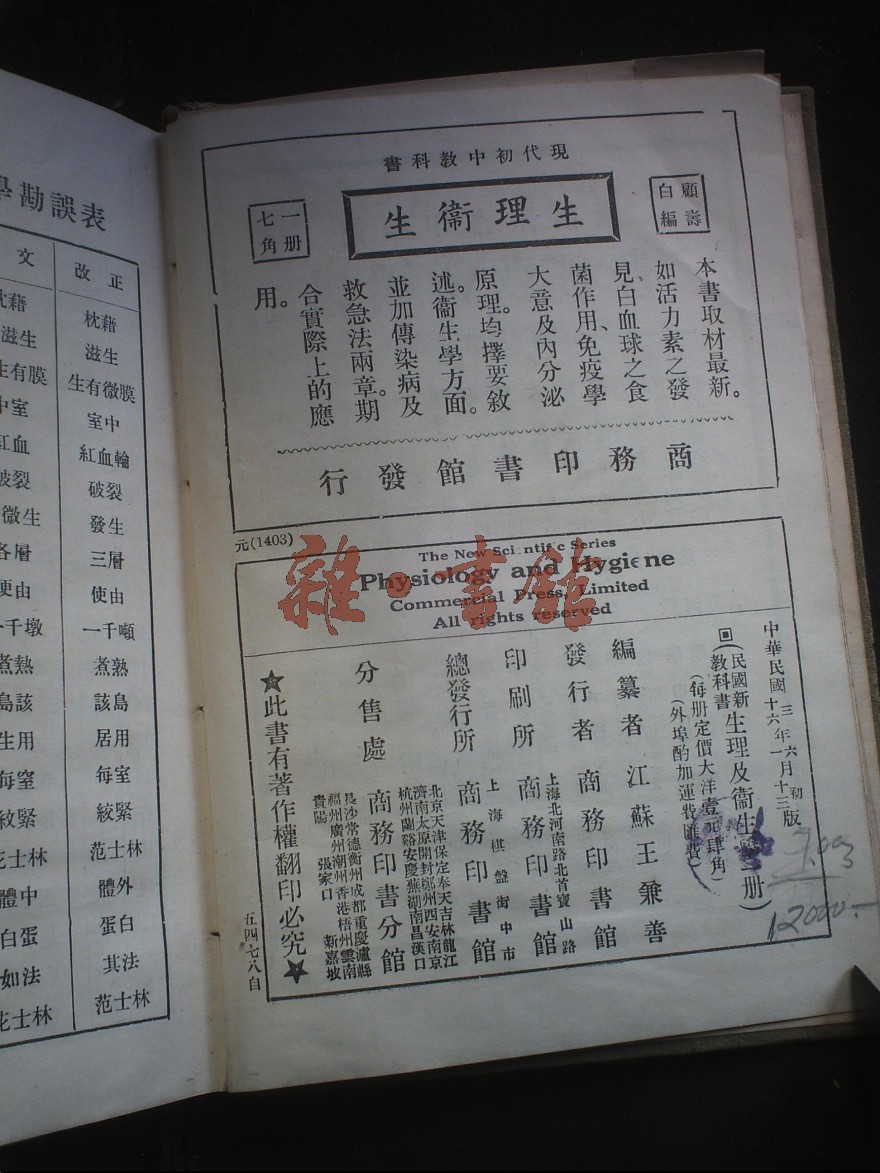 現代初中教科書
顧壽白編
生理衞生
一册七角
本書取材最新。
如活力素之發
見、白血球之食
菌作用、免疫學
大意及內分泌
原理。均擇要敘
述。衞生學方面。
並加傳染病及
救急法兩章。期
合實際上的應
用。
商務印書館發行
元(1403)
The New Scientific Series
Physiology and Hygiene
Commercial Press, Limited
All rights reserved
中華民國
三年六月初版
十六年一月十三版
民國新教科書
生理及衞生學一册
(每册定價大洋壹元肆角)
(外埠酌加運費匯費)
編纂者 江蘇王兼善
發行者 商務印書館
上海北河南路北首寶山路
印刷所 商務印書館
上海棋盤街中市
總發行所 商務印書館
北京天津保定奉天吉林龍江
濟南太原開封鄭州西安南京
杭州蘭谿安慶蕪湖南昌漢口
分售處 商務印書分館
長沙常德衡州成都重慶瀘縣
福州廣州潮州香港梧州雲南
貴陽 張家口 新嘉坡
★此書有著作權翻印必究★
五四七八自
雜·書館
12000.-
學勘誤表
文 改正
枕藉 枕藉
滋生 滋生
生有膜 生有微膜
中室 室中
紅血 紅血輪
破裂 破裂
微生 發生
各層 三層
便由 使由
一千墩 一千噸
煮熱 煮熟
島該 該島
生用 居用
每窒 每室
紋緊 絞緊
花士林 范士林
體中 體外
白蛋 蛋白
如法 其法
花士林 范士林